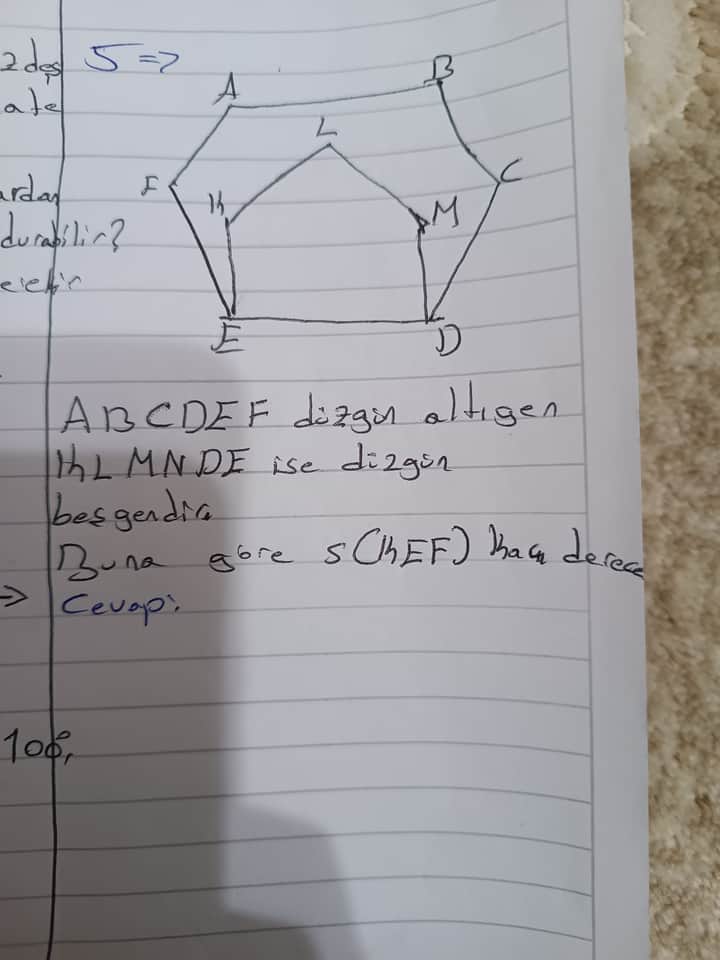 2 deş
ate
ardan
durabilir?
5 =>
A
B
L
F
C
K
M
E
D
ABCDEF düzgün altıgen
KLMNDE ise düzgün
beşgendir.
Buna göre s(KEF) kaç derece
=> Cevap:
108,